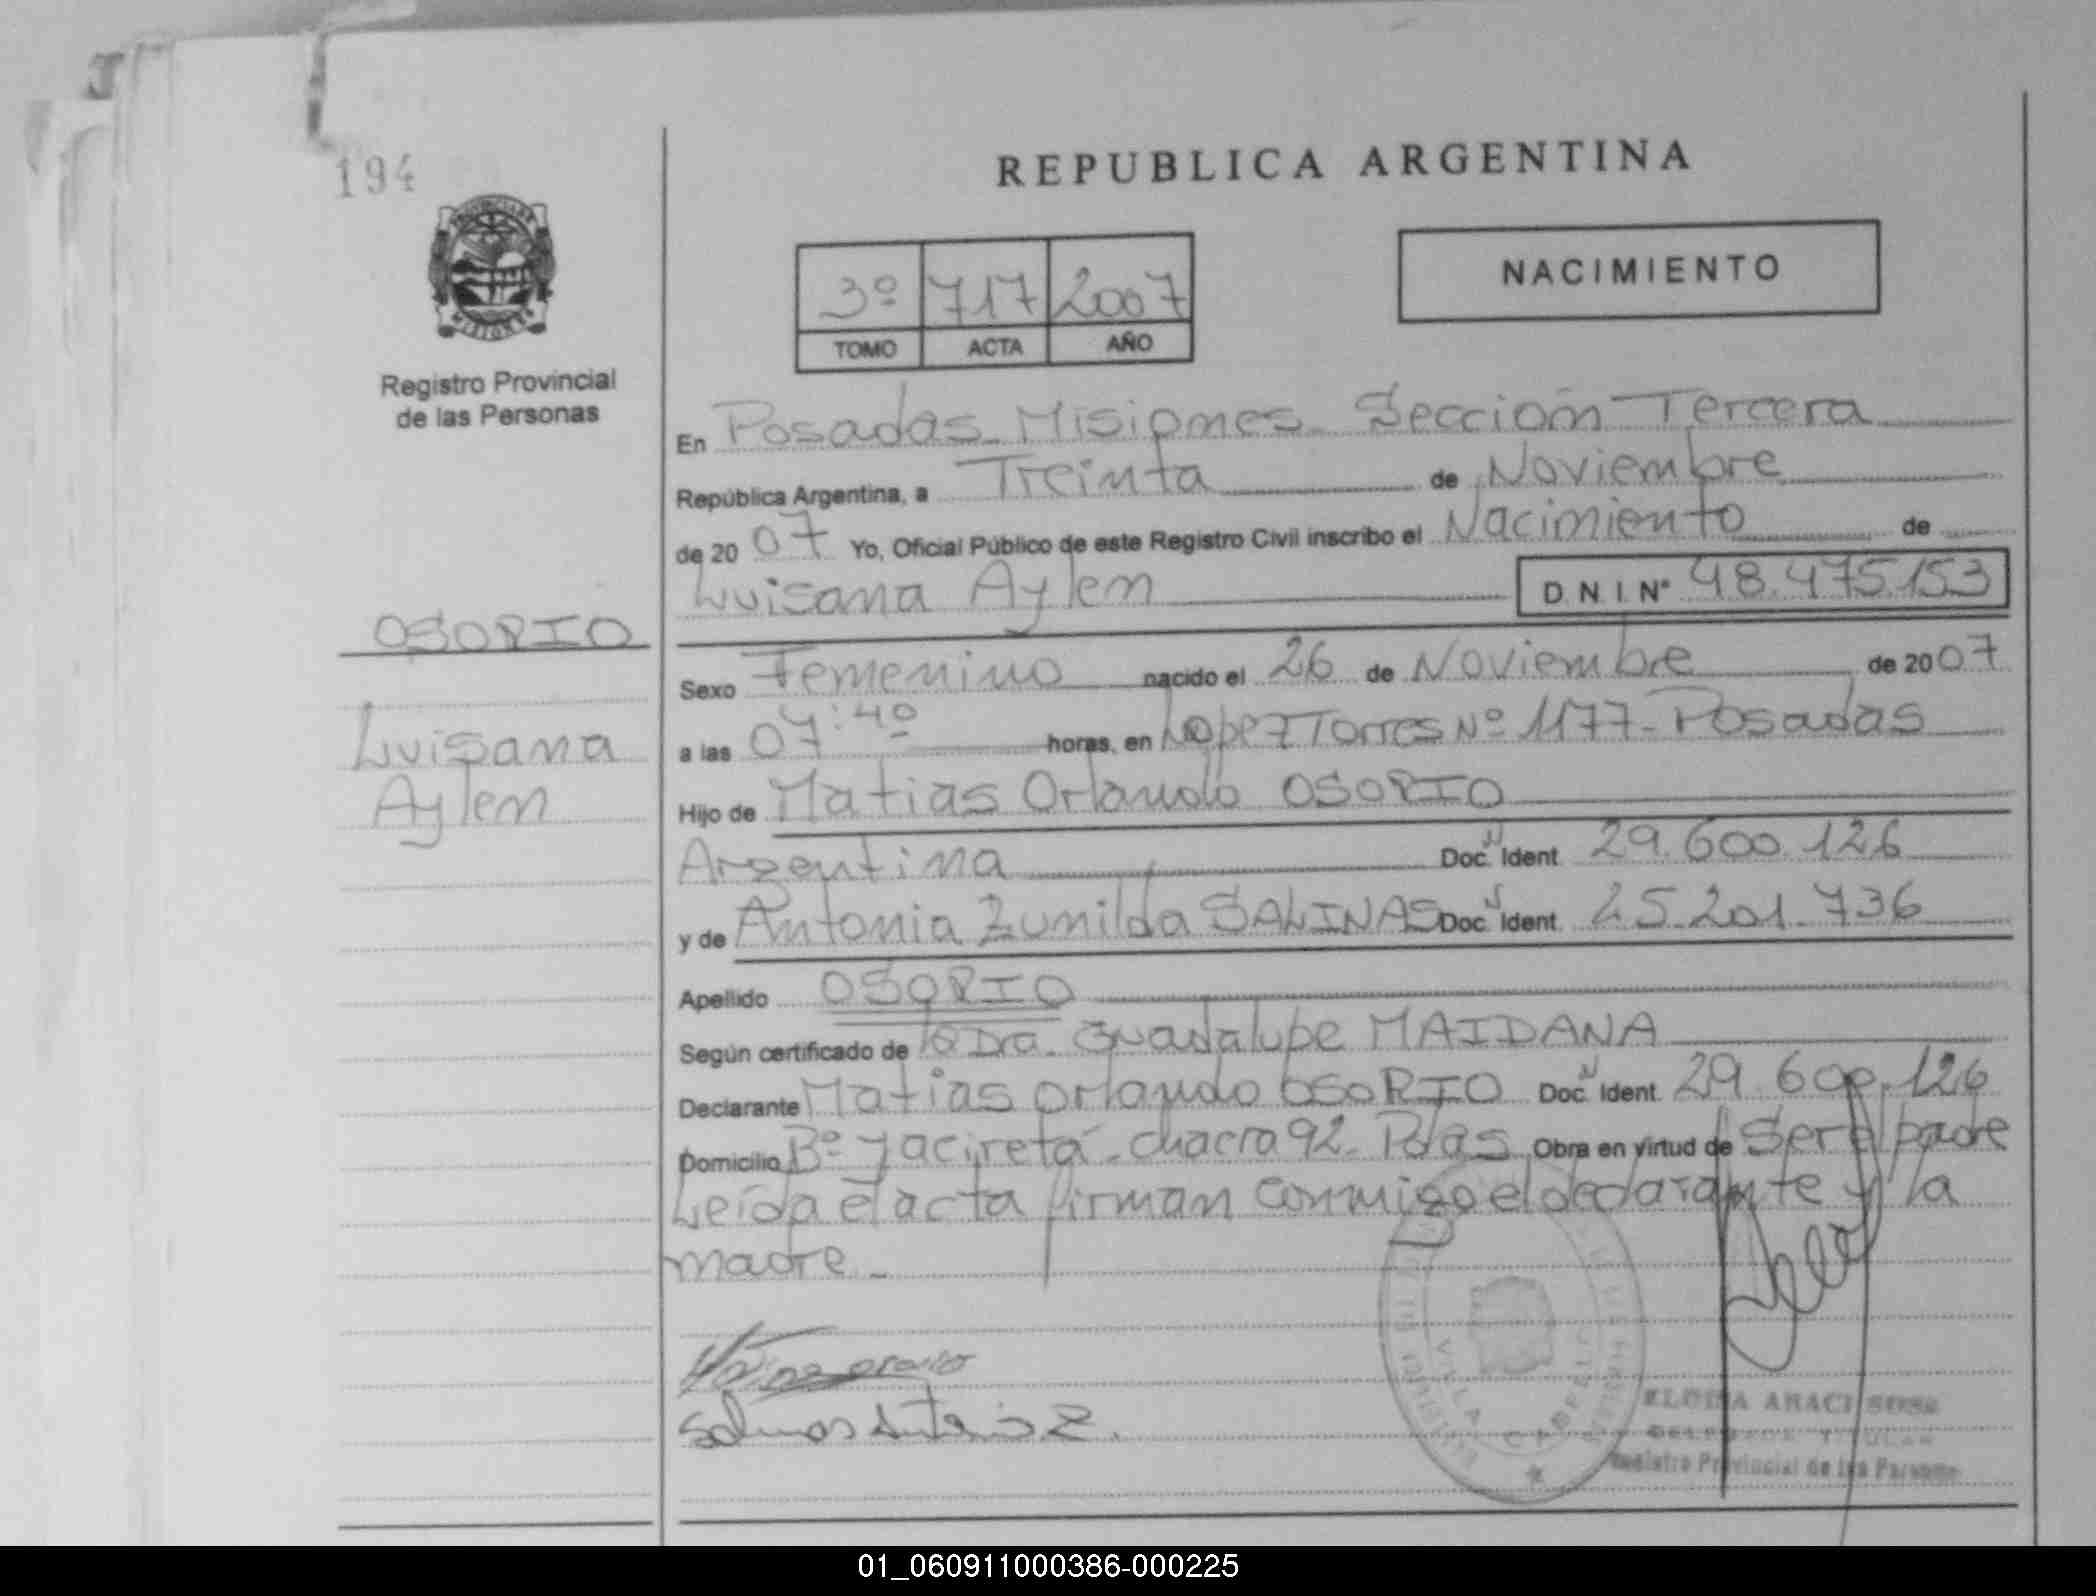 194
REPUBLICA ARGENTINA
3º 717 2007
TOMO ACTA AÑO
NACIMIENTO
PROVINCIA DE MISIONES
Registro Provincial
de las Personas
En Posadas Misiones Sección Tercera
República Argentina, a Treinta de Noviembre
de 2007 Yo, Oficial Público de este Registro Civil inscribo el Nacimiento de
Luisana Aylen D.N.I.Nº 48.475.153
OSORIO
Luisana
Aylen
Sexo Femenino nacido el 26 de Noviembre de 2007
a las 07:40 horas, en Lopez Torres Nº 1177-Posadas
Hijo de Matias Orlando OSORIO
Argentina Doc. Ident 29.600.126
y de Antonia Zunilda SALINAS Doc. Ident. 25.201.736
Apellido OSORIO
Según certificado de la Dra. Guadalupe MAIDANA
Declarante Matias Orlando OSORIO Doc. Ident. 29.600.126
Domicilio Bº Yacireta - chacra 92- Pdas Obra en virtud de Ser el padre
Leída el acta firman conmigo el declarante y la
madre -
Salinas Antonia Z.
VILLA CABELLO
ARACI SOSA
TITULAR
Registro Provincial de las Personas
01_060911000386-000225